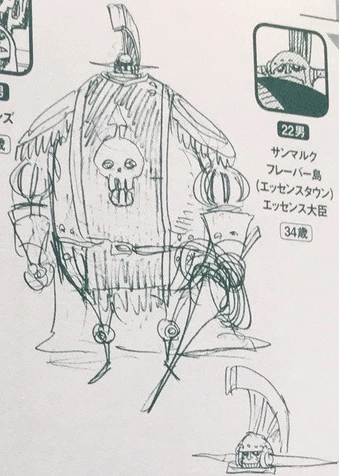 男
ンズ
歳
22男
サンマルク
フレーバー島
(エッセンスタウン)
エッセンス大臣
34歳